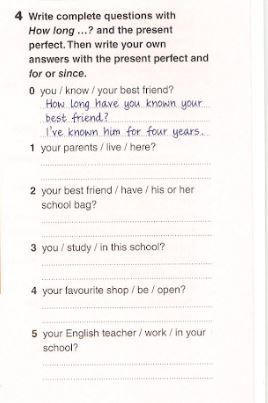 4 Write complete questions with
How long ...? and the present
perfect. Then write your own
answers with the present perfect and
for or since.
0 you / know / your best friend?
How long have you known your
best friend?
I've known him for four years.
1 your parents / live / here?
2 your best friend / have / his or her
school bag?
3 you / study / in this school?
4 your favourite shop / be / open?
5 your English teacher / work / in your
school?